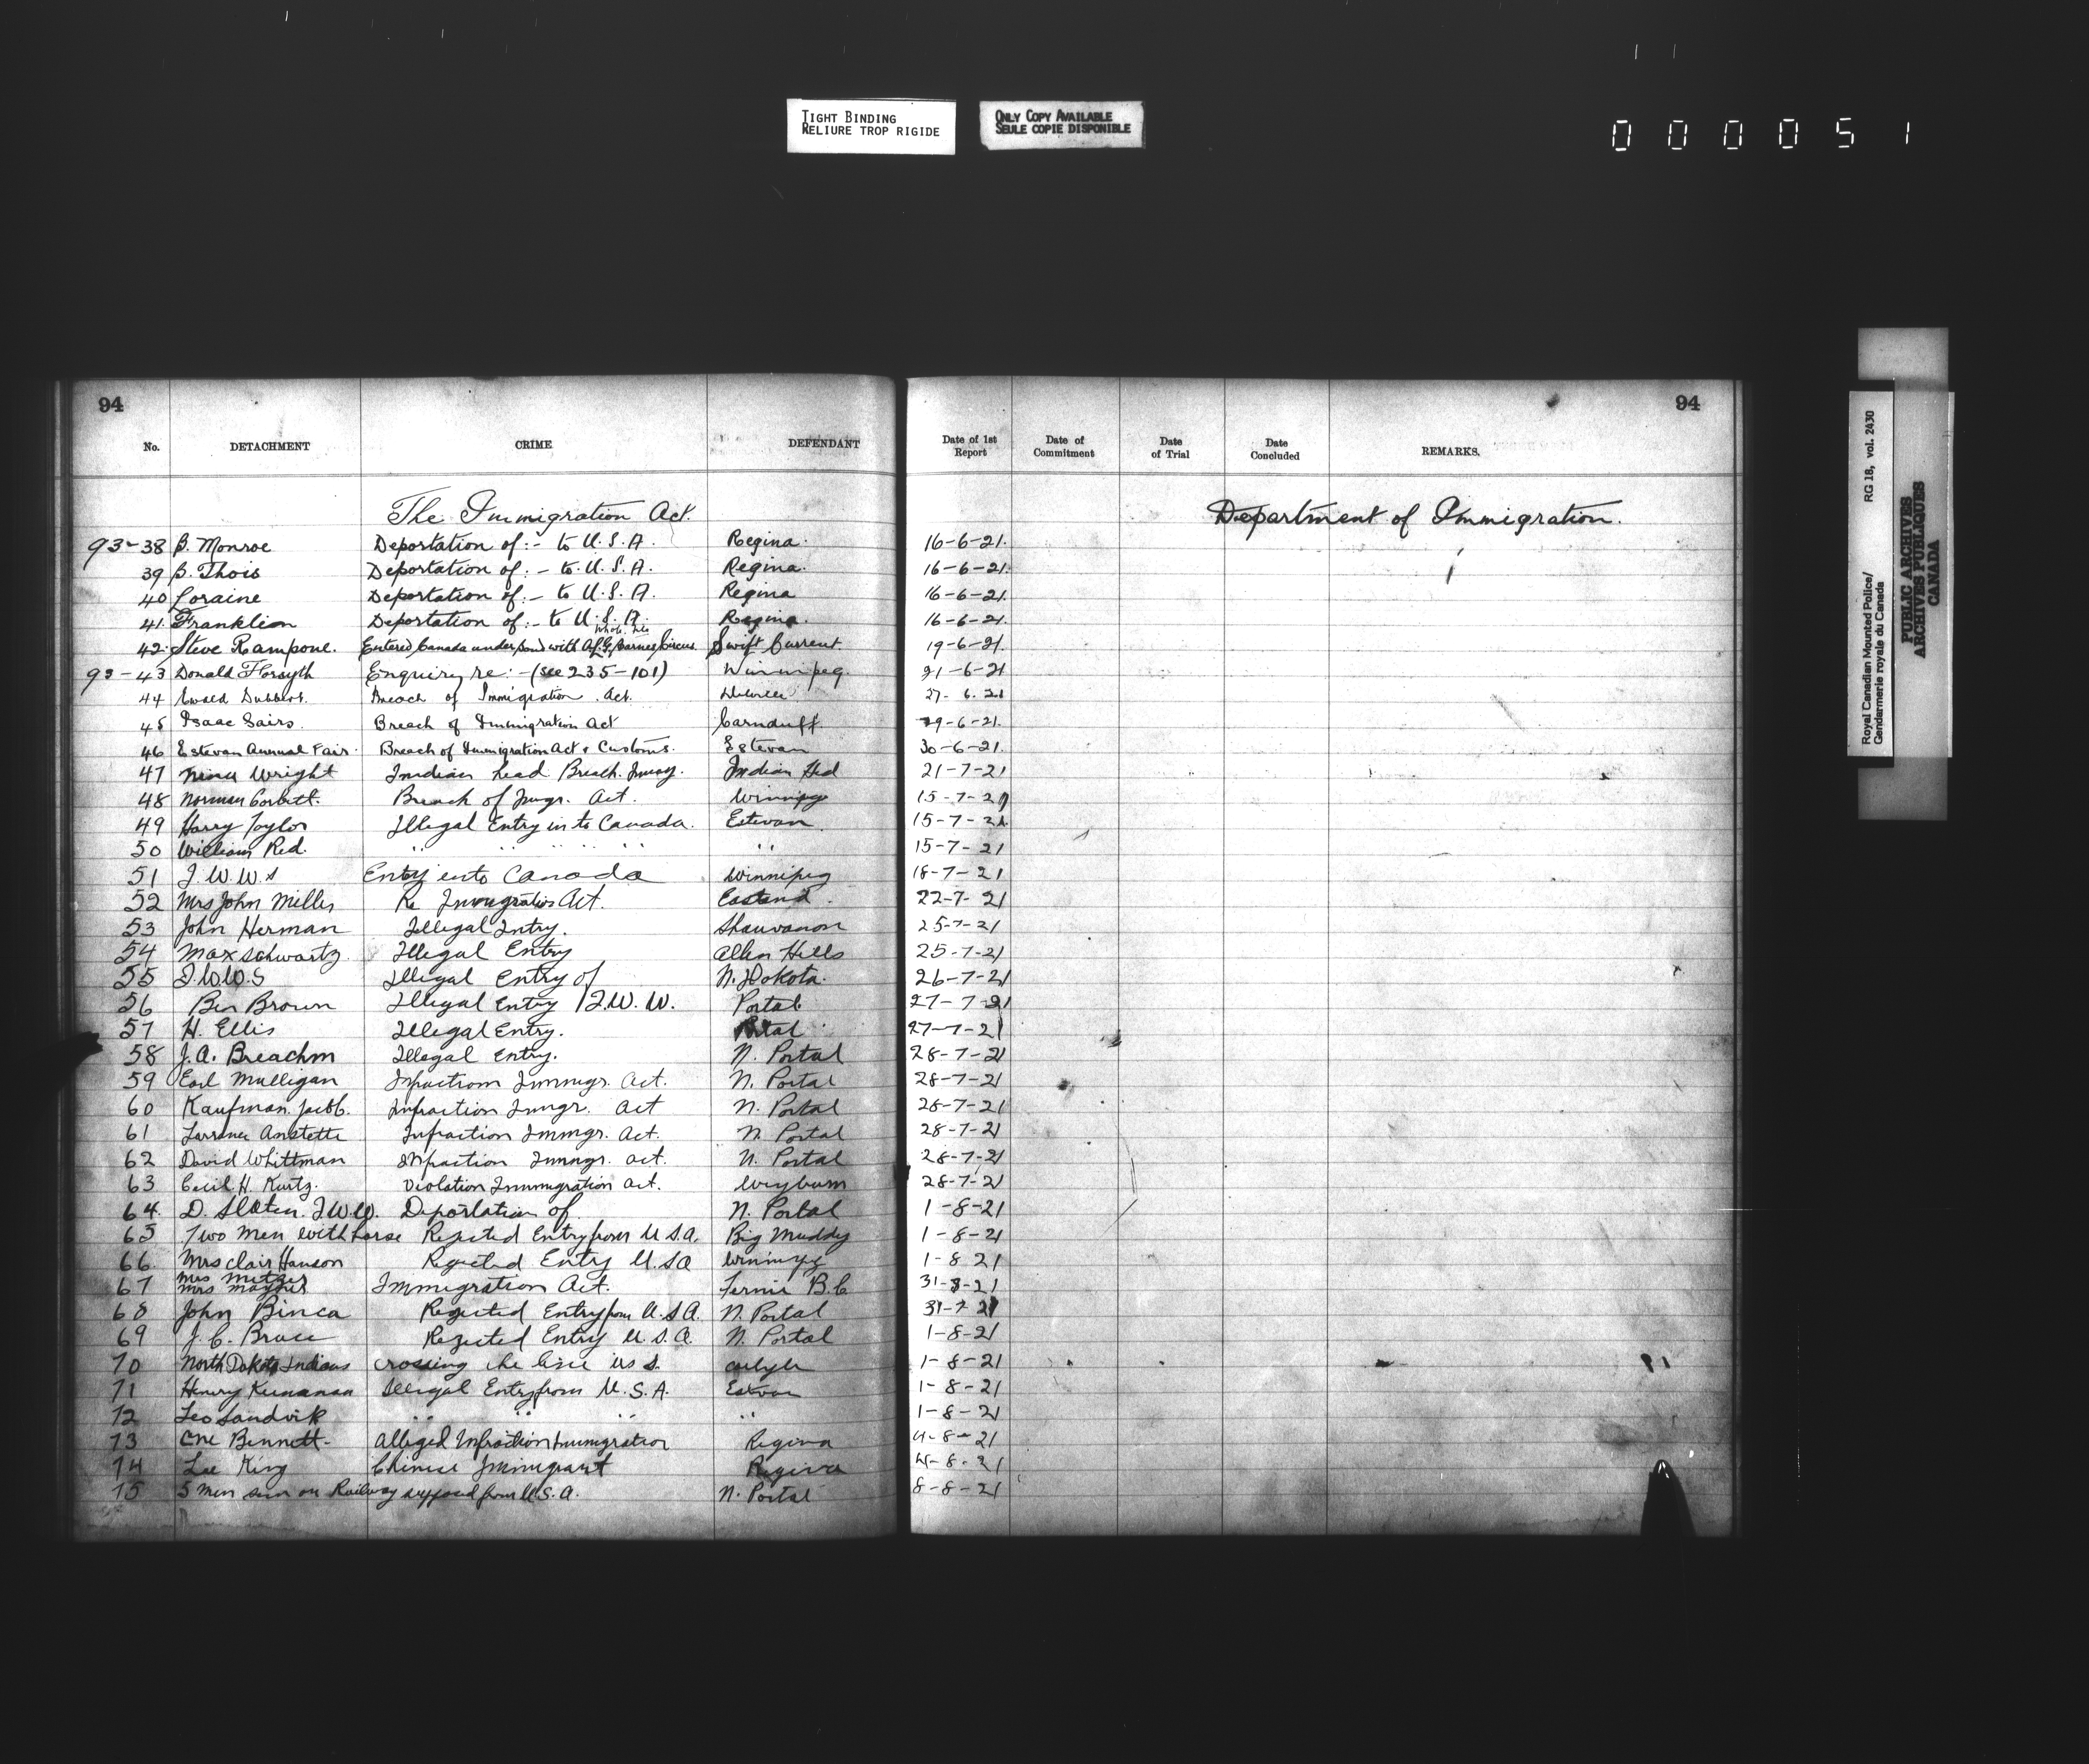 TIGHT BINDING
RELIURE TROP RIGIDE
ONLY COPY AVAILABLE
SEULE COPIE DISPONIBLE
000051
94 94
No. DETACHMENT CRIME DEFENDANT Date of 1st Report Date of Commitment Date of Trial Date Concluded REMARKS.
The Immigration Act. Department of Immigration.
93-38 B. Monroe Deportation of:- to U.S.A. Regina. 16-6-21.
39 B. Thois Deportation of:- to U.S.A. Regina. 16-6-21.
40 Loraine Deportation of:- to U.S.A. Regina 16-6-21.
41. Franklion Deportation of:- to U.S.A. Regina. 16-6-21.
42. Steve Rampone. Entered Canada under bond with Al. G. Barnes Circus. Swift Current. 19-6-21.
93-43 Donald Forsyth Enquiry re:- (see 235-101) Winnipeg. 21-6-21
44 Dubbert. Breach of Immigration Act. 27-6-21
45 Isaac Sairs. Breach of Immigration Act Carnduff. 29-6-21.
46 Estevan Annual Fair. Breach of Immigration Act & Customs. Estevan 30-6-21.
47 Nina Wright Indian Head Breach. Immg. Indian Hed 21-7-21
48 Norman Corbett. Breach of Imgr. Act. Winnipeg 15-7-21
49 Harry Taylor Illegal Entry in to Canada. Estevan. 15-7-21
50 William Red. " " " " " " 15-7-21
51 I.W.W.s Entry into Canada Winnipeg 18-7-21
52 Mrs John Miller Re Immigration Act. Eastend. 22-7-21
53 John Herman Illegal Entry. Shauvanon 25-7-21
54 Max Schwartz. Illegal Entry Allen Hills 25-7-21
55 I.W.W.S Illegal Entry of N. Dakota. 26-7-21
56 Ben Brown Illegal Entry I.W.W. Portal 27-7-21
57 H. Ellis Illegal Entry. Portal 27-7-21
58 J.A. Breachm Illegal Entry. N. Portal 28-7-21
59 Earl Mulligan Infraction Immgr. Act. N. Portal 28-7-21
60 Kaufman. Jacob. Infraction Imgr. Act N. Portal 28-7-21
61 Anstette Infraction Immgr. Act. N. Portal 28-7-21
62 David Whittman Infraction Immgr. Act. N. Portal 28-7-21
63 Cecil H. Kurtz. Violation Immigration Act. Weyburn 28-7-21
64. D. Slaten. I.W.W. Deportation of N. Portal 1-8-21
65 Two Men with horse Rejected Entry from U.S.A. Big Muddy 1-8-21
66. Mrs Clair Hanson Rejected Entry U.S.A Winnipeg 1-8 21
67 Mrs Metzer Immigration Act. Fernie B.C 31-8-21
68 John Binca Rejected Entry from U.S.A. N. Portal 31-7 21
69 J.C. Bruce Rejected Entry U.S.A. N. Portal 1-8-21
70 North Dakota Indians crossing the line U.S. Carlyle 1-8-21
71 Henry Illegal Entry from U.S.A. Estvan 1-8-21
72 Leo Sandvik " " " " 1-8-21
73 Bennett- Alleged Infraction Immigration Regina 4-8-21
74 Lee King Chinese Immigrant Regina 4-8-21
75 5 men seen on Railway supposed from U.S.A. N. Portal 8-8-21
Royal Canadian Mounted Police/ RG 18, vol. 2430
Gendarmerie royale du Canada
PUBLIC ARCHIVES
ARCHIVES PUBLIQUES
CANADA